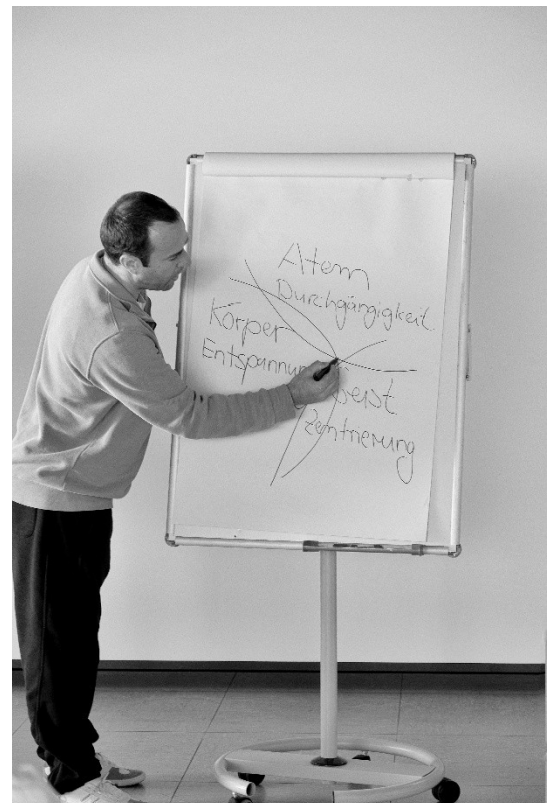 Atem
Durchgängigkeit
Körper
Entspannun
Geist
Zentrierung